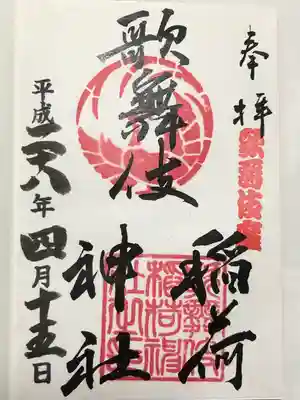 奉拝
歌舞伎座
歌舞伎
稲荷
神社
平成二十八年四月十五日
歌舞伎
稲荷神
社之印